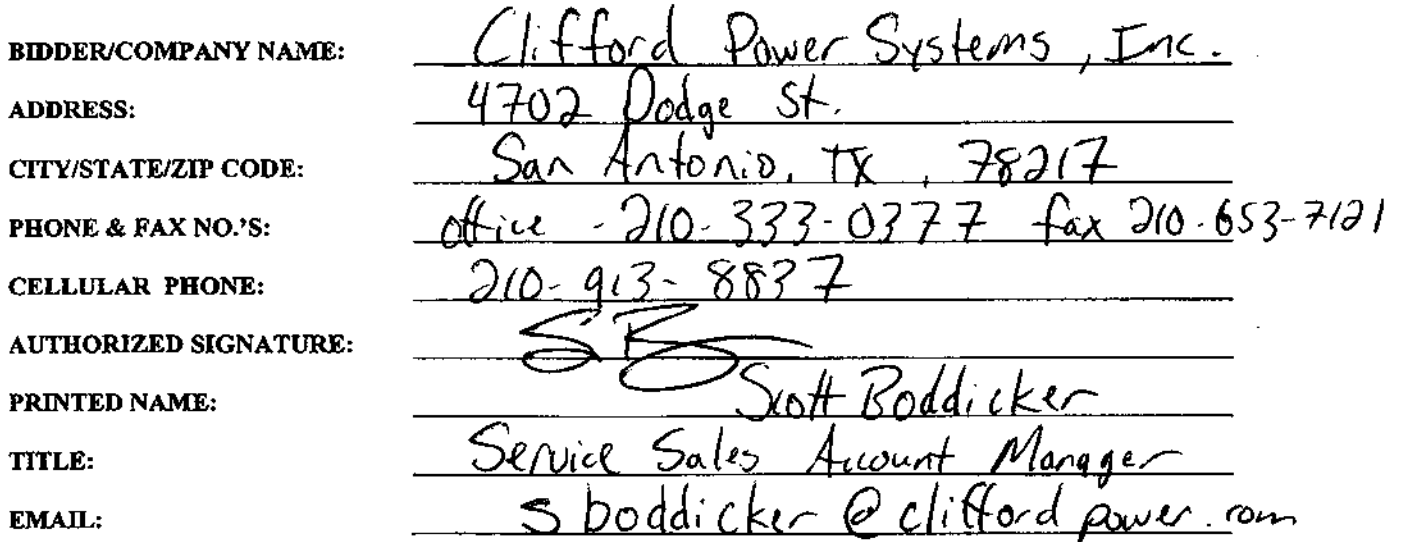 BIDDER/COMPANY NAME: Clifford Power Systems, Inc.
ADDRESS: 4702 Dodge St.
CITY/STATE/ZIP CODE: San Antonio, TX, 78217
PHONE & FAX NO.'S: office - 210-333-0377 fax 210-653-7121
CELLULAR PHONE: 210-913-8837
AUTHORIZED SIGNATURE: SB
PRINTED NAME: Scott Boddicker
TITLE: Service Sales Account Manager
EMAIL: sboddicker@cliffordpower.com